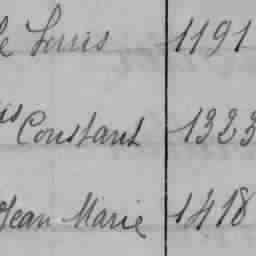 le Louis 1191
Constant 1323
Jean Marie 1418